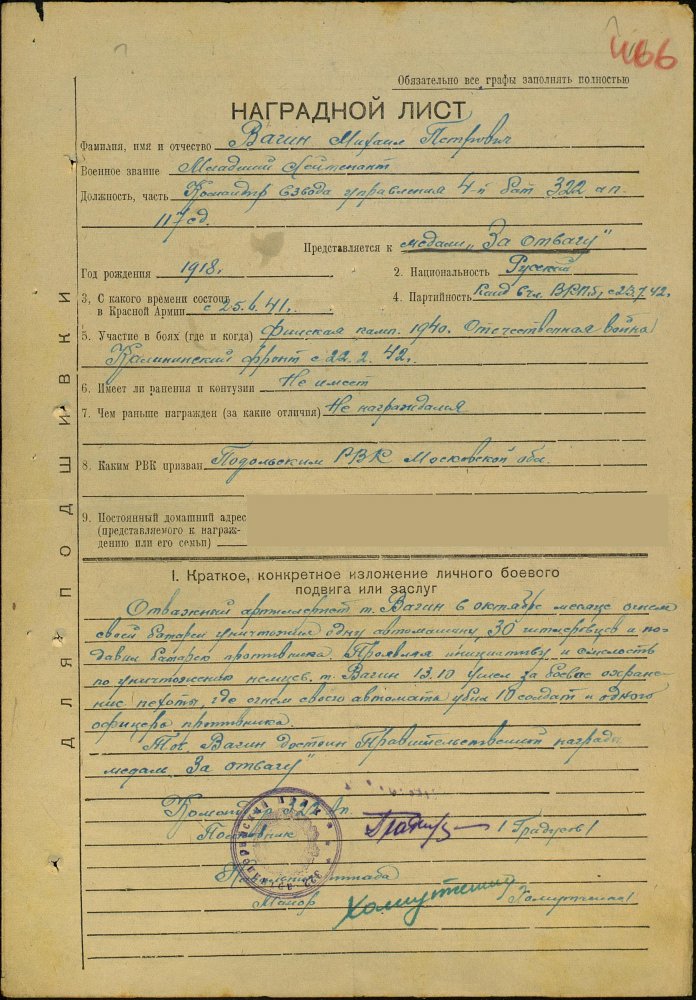 466
Обязательно все графы заполнять полностью
НАГРАДНОЙ ЛИСТ
Фамилия, имя и отчество Вагин Михаил Петрович
Военное звание Младший Лейтенант
Должность, часть Командир взвода управления 4-й бат 322 ап.
117 сд.
Представляется к медали „За отвагу"
Год рождения 1918г.
2. Национальность Русский
3. С какого времени состоит
в Красной Армии с 25.6.41г.
4. Партийность Канд в чл. ВКПб, с 7.42.
5. Участие в боях (где и когда) Финская камп. 1940. Отечественная война
Калининский фронт с 22.2.42г.
6. Имеет ли ранения и контузии Не имеет
7. Чем раньше награжден (за какие отличия) Не награждался
8. Каким РВК призван Подольским РВК Московской обл.
9. Постоянный домашний адрес
(представляемого к награж-
дению или его семьи)
I. Краткое, конкретное изложение личного боевого
подвига или заслуг
Отважный артиллерист т. Вагин в октябре месяце огнем
своей батареи уничтожил одну автомашину, 30 гитлеровцев и по-
давил батарею противника. Проявляя инициативу и смелость
по уничтожению немцев. т. Вагин 13.10 ушел за боевое охране-
ние пехоты, где огнем своего автомата убил 10 солдат и одного
офицера противника.
Тов. Вагин достоин Правительственной награды
медаль За отвагу"
Командир 322 ап.
Полковник /Градусов/
Начальник штаба
Майор
ДЛЯ ПОДШИВКИ